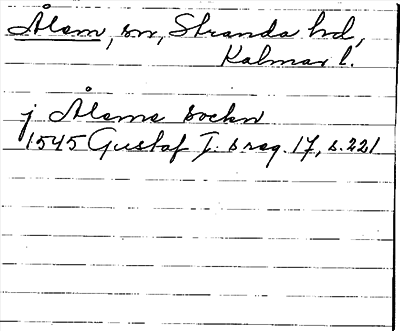 Ålem, sn, Stranda hd,
Kalmar l.
j Ålems sockn
1545 Gustaf I:s reg. 17, s. 221